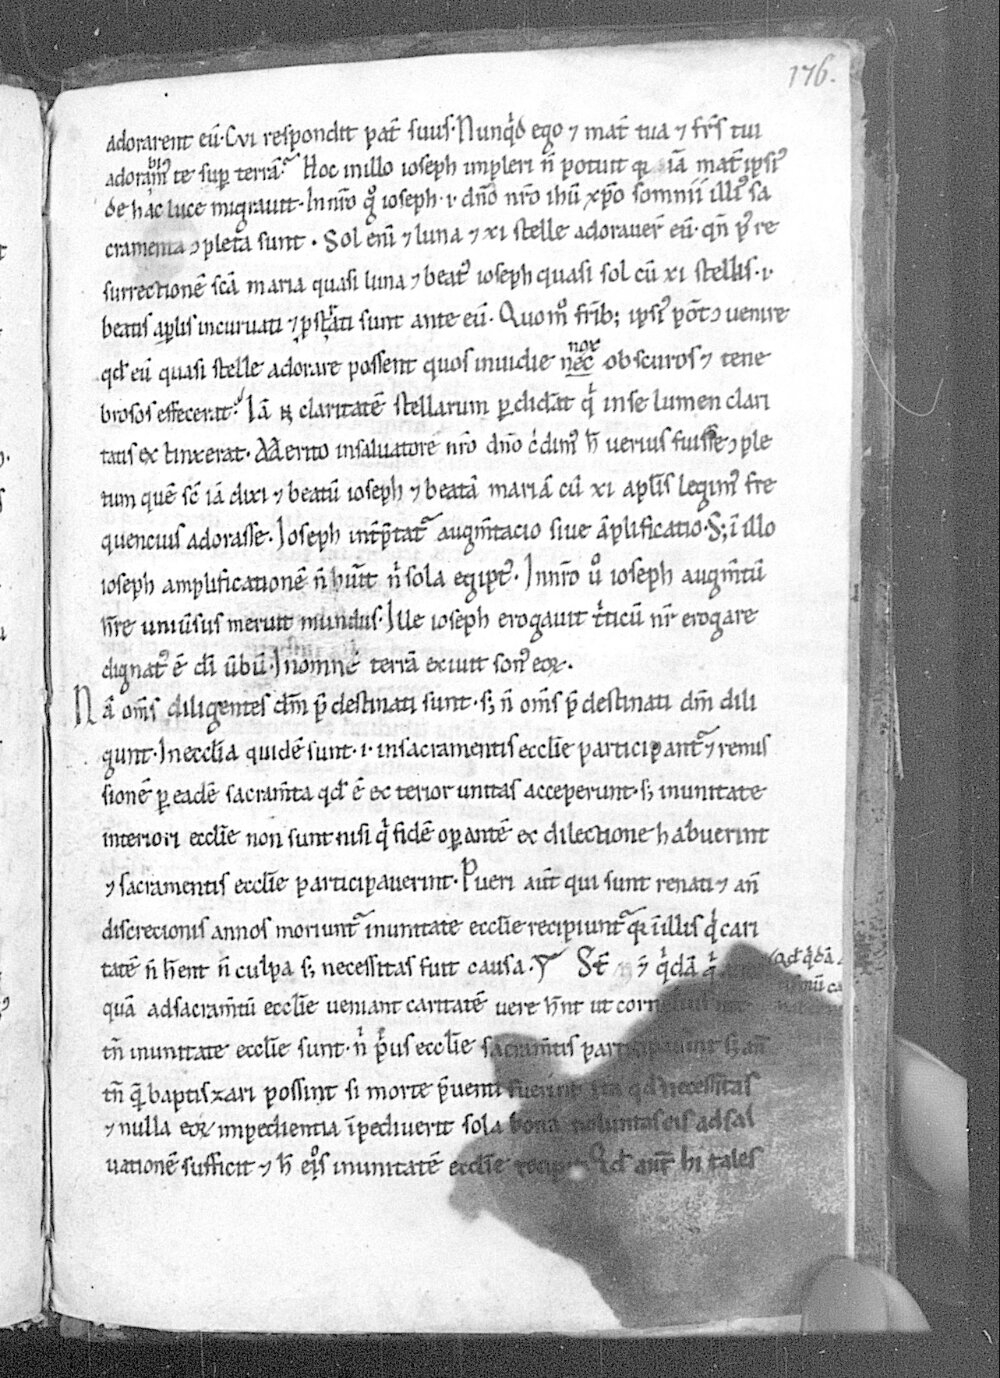 176.
adorarent eū· Cui respondit pat̄ suus· Nunq̇d ego ⁊ mat̄ tua ⁊ fr̄s tui
adorabim᷒ te suꝑ terrā· Hoc in illo ioseph impleri n̄ potuit qr iā mat̄ ipsi᷒
de hac luce migrauit· In nr̄o g̊ ioseph ·i· dn̄o nr̄o ih̄u xp̄o somnii illi᷒ sa
cramenta ꝯpleta sunt · Sol eni̅ ⁊ luna ⁊ xi stelle adorauer̄ eū· qn̄ p᷒ re
surrectionē sc̄a maria quasi luna ⁊ beat᷒ ioseph quasi sol cū xi stellis ·i·
beatis apl̄is incuruati ⁊ pstrati sunt ante eū· Quom̊ frib; ipsi᷒ pōt ꝯuenire
qd̄ eū quasi stelle adorare possent quos inuidie nec nox obscuros ⁊ tene
brosos effecerat· Iā claritatē stellarum ꝑdidāt qͥ in se lumen clari
tatis extinxerat· Merito in saluatore nr̄o dn̄o c̄dim᷒ h̄ uerius fuisse ꝯple
tum quē sic̄ iā dixi ⁊ beatū ioseph ⁊ beatā mariā cū xi apl̄is legim᷒ fre
quencius adorasse· Ioseph int̄p̄tat᷑ augm̄tacio siue āplificatio· S; ī illo
ioseph amplificationē n̄ huit̄ nͥ sola egipt᷒· In nr̄o ů ioseph augm̄tū
h̄re uniūsus meruit mundus· Ille ioseph erogauit tͥticū nr̄ erogare
dignat᷒ ē di̅ ūbū· In omnē terrā exiuit son᷒ eoꝝ·
Nā om̄s diligentes dm̄ p̄destinati sunt· s; n̄ om̄s p̄destinati dm̄ dili
gunt· In eccl̄ia quidē sunt ·i· in sacramentis eccl̄ie participant᷑ ⁊ remis
sionē ꝑ eadē sacram̄ta qd̄ ē exterior unitas acceperunt· s; in unitate
interiori eccl̄ie non sunt nisi qͥ fidē oꝑantē ex dilectione habuerint
⁊ sacramentis eccl̄ie participauerint· Pueri aut̄ qui sunt renati ⁊ an̄
discrecionis annos moriunt᷑ in unitate eccl̄ie recipiunt᷑ qr ī illis qd̄ cari
tatē n̄ h̄ent n̄ culpa s; necessitas fuit causa· St̄ qͥdā qͥ
quā ad sacram̄tū eccl̄ie ueniant caritatē uere h̄nt ut cornelius
tn̄ in unitate eccl̄ie sunt· nͥ pͥus eccl̄ie sacram̄tis participauīnt s; an̄
tn̄ q̄ baptiszari possint si morte p̄uenti fuerint ita qd̄ necessitas
⁊ nulla eoꝝ impedientia īpediuerit sola bona uoluntas eis ad sal
uationē sufficit ⁊ h̄ eos in unitatē eccl̄ie recipit Qd̄ aut̄ hi tales